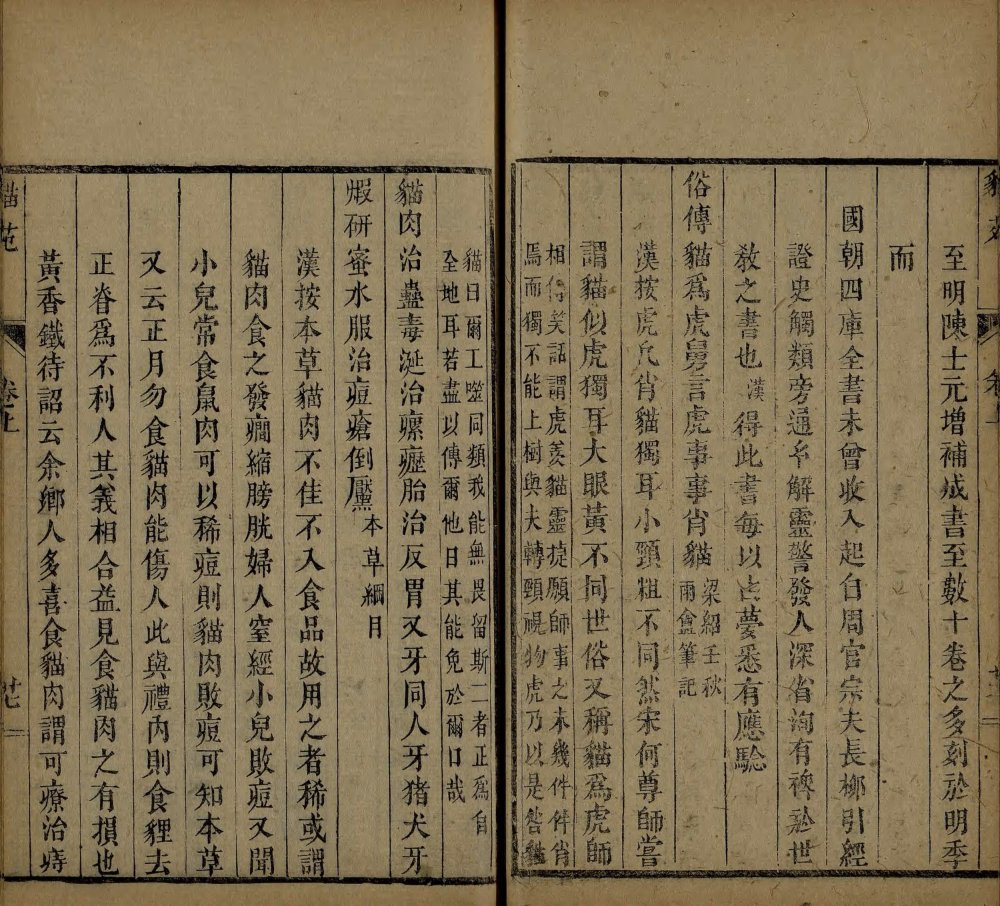 至明陳士元增補成書至數十卷之多刻於明季
而
國朝四庫全書未曾收入起自周官宗夫長柳引經
證史觸類旁通平解靈警發人深省洵有裨於世
教之書也漢得此書每以占夢悉有應驗
俗傳貓為虎舅言虎事事肖貓梁紹壬秋
雨盦筆記
漢按虎凡肖貓獨耳小頸粗不同然宋何尊師嘗
謂貓似虎獨耳大眼黃不同世俗又稱貓為虎師
相傳笑話謂虎羨貓靈捷願師事之未幾件件肖
焉而獨不能上樹與夫轉頸視物虎乃以是咎貓
貓苑
卷上
貓曰爾工噬同類我能無畏留斯二者正為自
全地耳若盡以傳爾他日其能免於爾口哉
貓肉治蠱毒涎治瘰癧胎治反胃又牙同人牙猪犬牙
煆研蜜水服治痘瘡倒黶本草綱目
漢按本草貓肉不佳不入食品故用之者稀或謂
貓肉食之發癇縮膀胱婦人窒經小兒敗痘又聞
小兒常食鼠肉可以稀痘則貓肉敗痘可知本草
又云正月勿食貓肉能傷人此與禮內則食貍去
正脊為不利人其義相合益見食貓肉之有損也
黃香鐵待詔云余鄉人多喜食貓肉謂可療治痔
貓苑
卷上
廿七